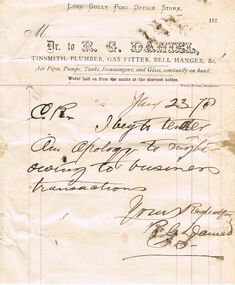 LONG GULLY POST OFFICE STORE.
187
M
Dr. to R. G. DANIEL,
TINSMITH, PLUMBER, GAS FITTER, BELL HANGER, &c.
Air Pipes, Pumps, Tanks, Ironmongery, and Glass, constantly on hand.
Water laid on from the mains at the shortest notice.
Jany 23/78
I beg to tender
An Apology to night
owing to business
transactions
Yours Respectfully
R G Daniel